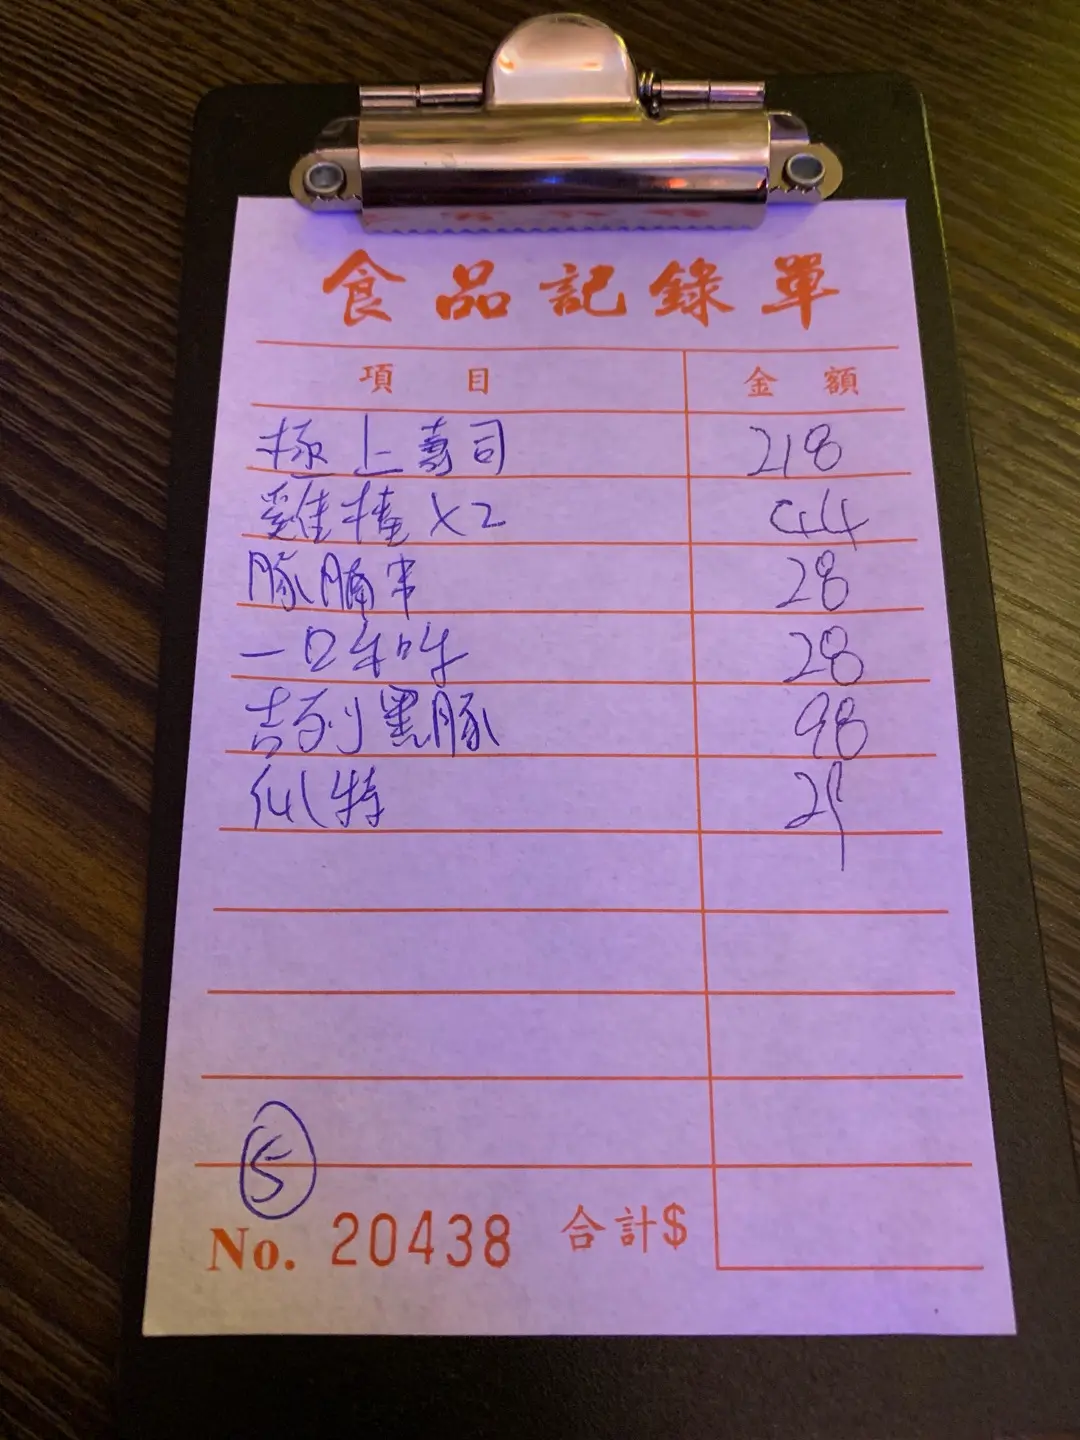 食品記錄單
項目 金額
極上壽司 218
雞撞 X2 44
豚腩串 28
一口牛叶 28
吉列黑豚 98
似特 29
5
No. 20438 合計$